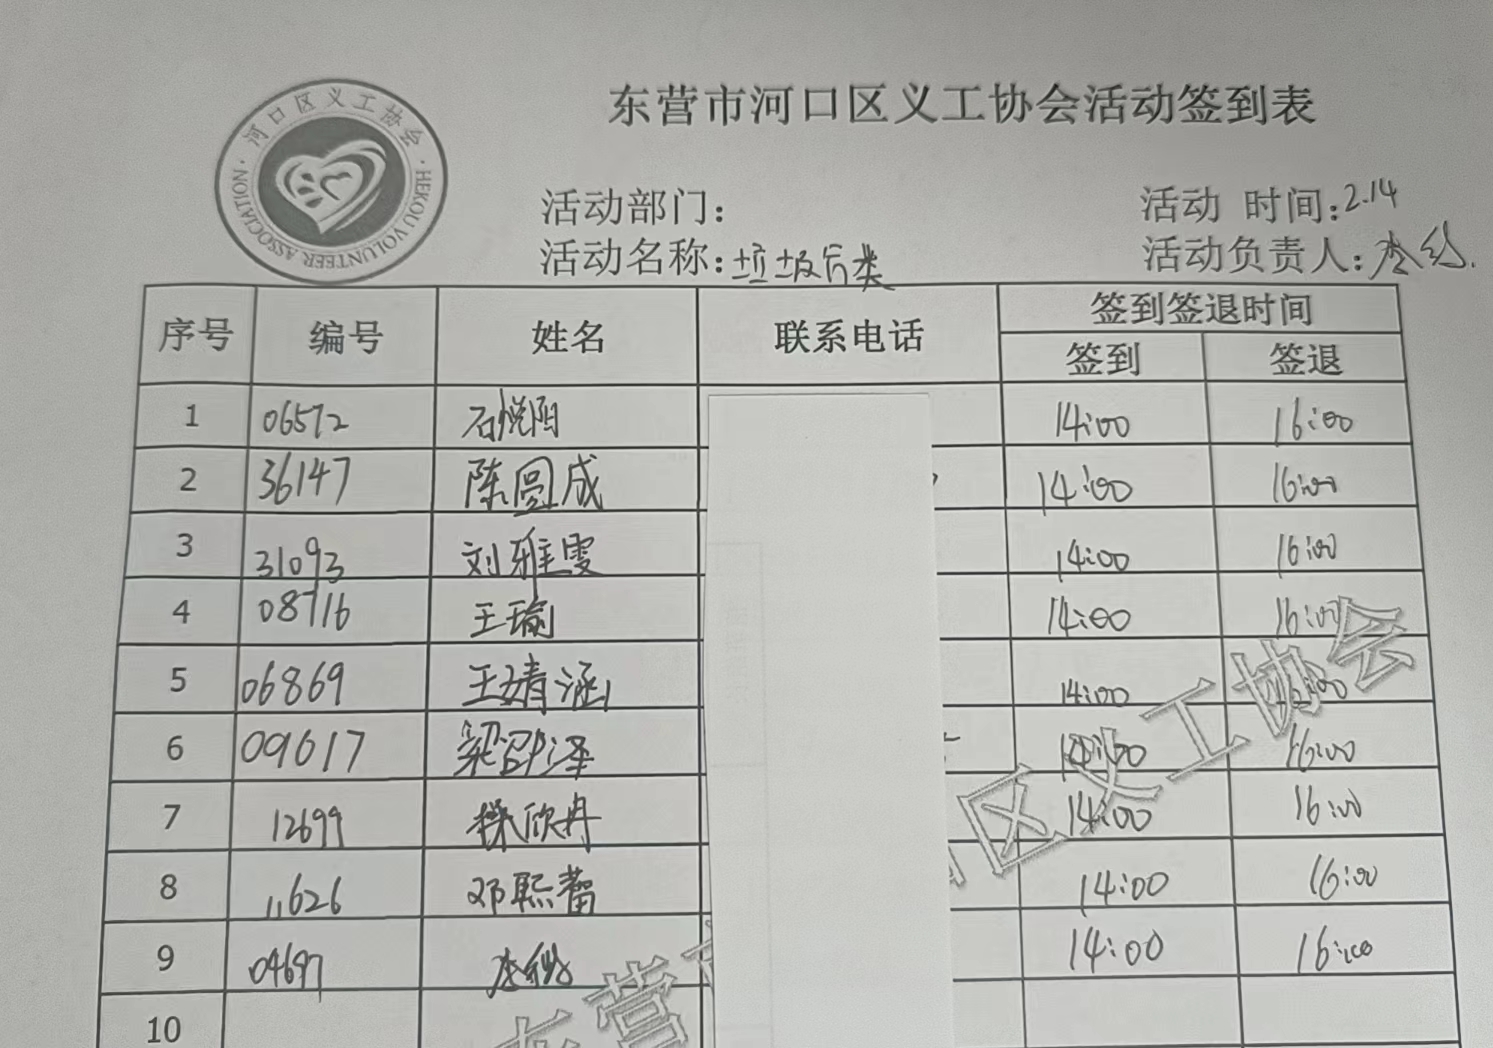 东营市河口区义工协会活动签到表
河口区义工协会
HEKOU VOLUNTEER ASSOCIATION
活动部门：
活动 时间：2.14
活动名称：垃圾分类
活动负责人：
序号 编号 姓名 联系电话 签到签退时间
签到 签退
1 06572 石悦阳 14:00 16:00
2 36147 陈圆成 14:00 16:00
3 31093 刘雅雯 14:00 16:00
4 08716 王瑜 14:00 16:00
5 06869 王婧涵 14:00 16:00
6 09617 梁邵泽 14:00 16:00
7 12699 欣冉 14:00 16:00
8 11626 邓熙 14:00 16:00
9 04697 14:00 16:00
10
东营 区义工协会